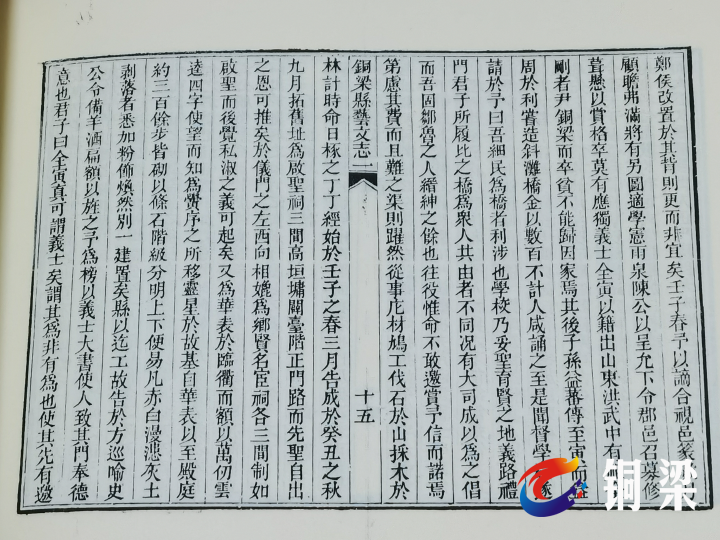 鄭侯改置於其背則更而非宜矣壬子春予以謫合視邑篆
顧瞻弗滿將有另圖適學憲雨泉陳公以呈允下令郡邑召募修
葺懸以賞格卒莫有應獨義士全寅以籍出山東洪武中有
剛者尹銅梁而卒貧不能歸因家焉其後子孫益蕃傳至寅而
周於利嘗造斜灘橋金以數百不計人咸誦之至是聞督學
請於予曰吾細民爲橋者利涉也學校乃妥聖育賢之地義路禮
門君子所履比之橋爲衆人共由者不同況有大司成以爲之倡
而吾固鄒魯之人縉紳之餘也往役惟命不敢邀賞予信而諾焉
第慮其費而且難之渠則躍然從事庀材鳩工伐石於山採木於
銅梁縣藝文志一
十五
林計時命日椓之丁丁經始於壬子之春三月告成於癸丑之秋
九月拓舊址爲啟聖祠三間高垣墉闢臺階正門路而先聖自出
之恩可推矣於儀門之左西向相媲爲鄉賢名宦祠各三間制如
啟聖而後覺私淑之義可起矣又爲華表於臨衢而額以萬仞雲
逵四字使望而知爲黌序之所移靈星於故基自華表以至殿庭
約三百餘步皆砌以條石階級分明上下便易凡赤白漫漶灰土
剥落者悉加粉飾煥然別一建置矣縣以迄工故告於方巡喻史
公令備羊酒扁額以旌之予爲榜以義士大書使人致其門奉德
意也君子曰全寅真可謂義士矣謂其爲非有爲也使其先有邀
铜梁